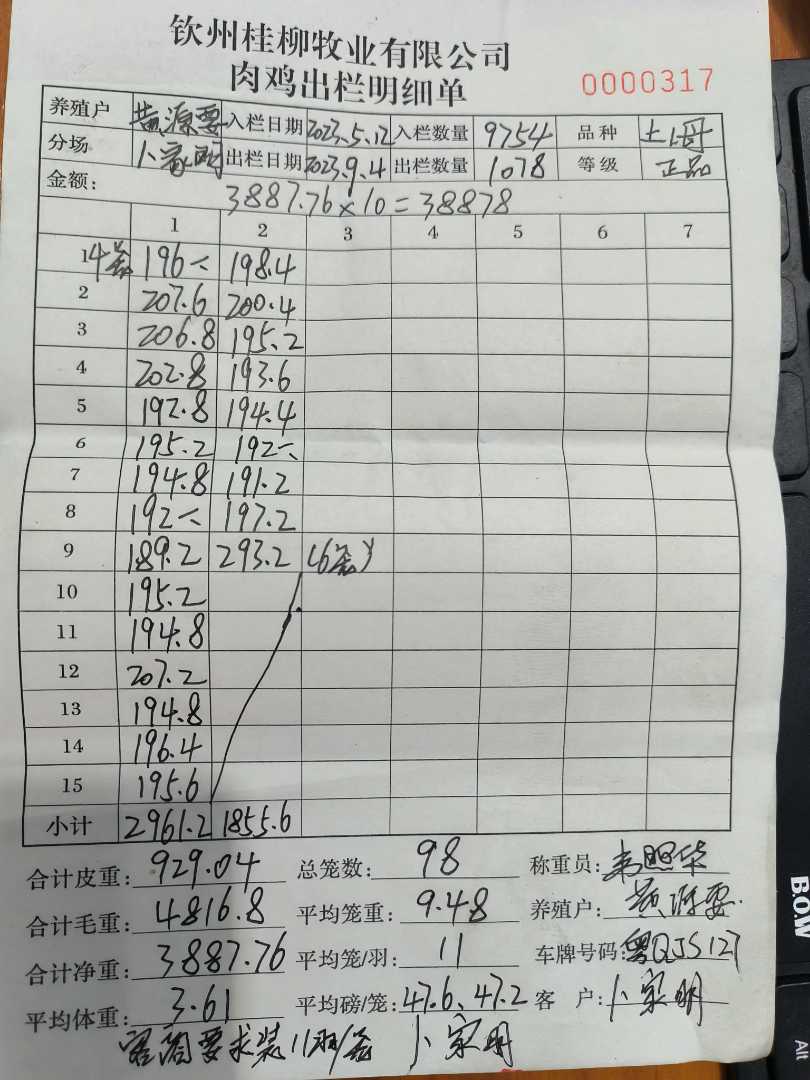 钦州桂柳牧业有限公司
肉鸡出栏明细单
0000317
养殖户 黄源要 入栏日期 2023.5.12 入栏数量 9754 品种 土2母
分场 卜家明 出栏日期 2023.9.4 出栏数量 1078 等级 正品
金额: 3887.76×10=38878
1 2 3 4 5 6 7
1 4笼 196 198.4
2 207.6 200.4
3 206.8 195.2
4 202.8 193.6
5 192.8 194.4
6 195.2 192
7 194.8 191.2
8 192 197.2
9 189.2 293.2 (6笼)
10 195.2
11 194.8
12 207.2
13 194.8
14 196.4
15 195.6
小计 2961.2 1855.6
合计皮重: 929.04 总笼数: 98 称重员: 韦照华
合计毛重: 4816.8 平均笼重: 9.48 养殖户: 黄源要
合计净重: 3887.76 平均笼/羽: 11 车牌号码: 粤QJS127
平均体重: 3.61 平均磅/笼: 47.6、47.2 客 户: 卜家明
客商要求装11羽/笼 卜家明
B.O.W
Alt